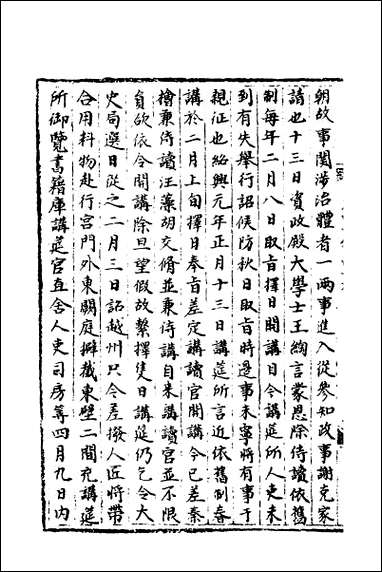 朝故事闗渉治體者一兩事進入從參知政事謝克家
請也十三日資政殿大學士王綯言蒙恩除侍讀依舊
制每年二月八日取㫖擇日開講日今講筵所人吏未
到有失舉行詔候防秋日取㫖時邊事未寧將有事于
親征也紹興元年正月十三日講筵所言近依舊制春
講於二月上旬擇日奉㫖差定講讀官開講今已差秦
檜兼侍讀汪藻胡交脩並兼侍講自来講讀官並不限
員欲依令開講除旦望假故繫擇隻日講筵仍乞令太
史局選日從之二月三日詔越州只令差撥人匠將帶
合用料物赴行宫門外東闕庭擗截東壁二間充講筵
所御覽書籍庫講筵官直舍人吏司房等四月九日内